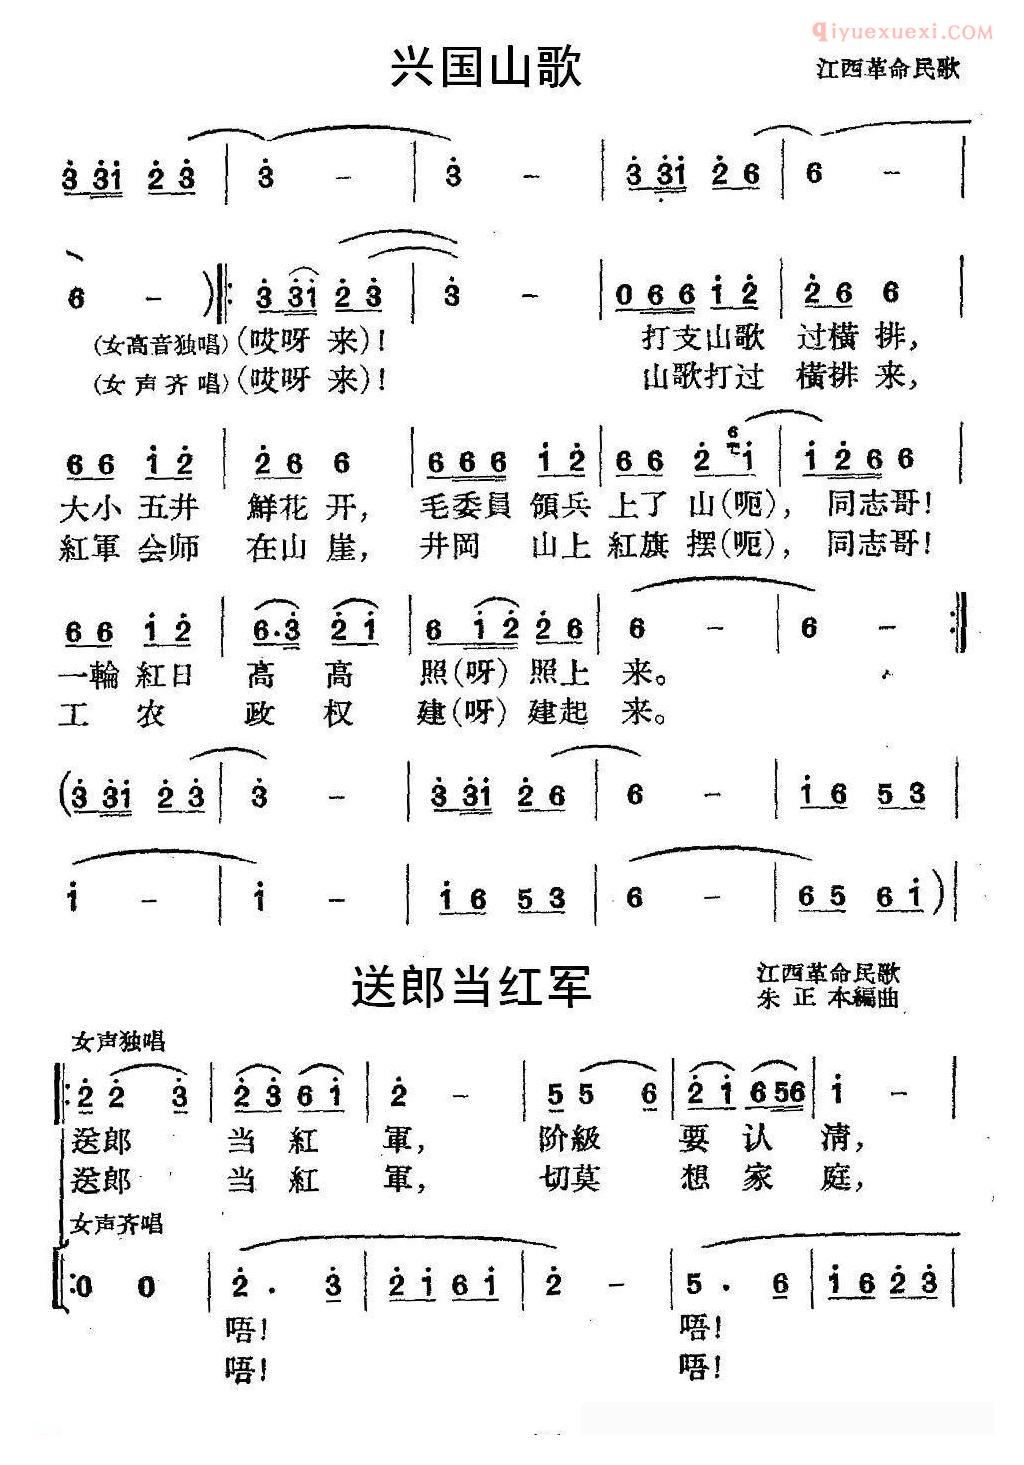 qiyuexuexi.COM
兴国山歌
江西革命民歌
3 31 2 3 | 3 - | 3 - | 3 31 2 6 | 6 - |
6 - ) |: 3 31 2 3 | 3 - | 0 6 6 1 2 | 2 6 6
(女高音独唱) (哎呀 来)! 打支山歌 过橫 排,
(女声齐唱) (哎呀 来)! 山歌打过 橫排 来,
6 6 1 2 | 2 6 6 | 6 6 6 1 2 | 6 6 2 6 1 | 1 2 6 6 |
大小 五井 鮮花 开, 毛委員 領兵 上了 山(呃), 同志哥!
紅軍 会师 在山 崖, 井岡 山上 紅旗 摆(呃), 同志哥!
6 6 1 2 | 6·3 2 1 | 6 1 2 2 6 | 6 - | 6 - :|
一輪 紅日 高 高 照(呀) 照上 来。
工 农 政 权 建(呀) 建起 来。
(3 31 2 3 | 3 - | 3 31 2 6 | 6 - | 1 6 5 3 |
1 - | 1 - | 1 6 5 3 | 6 - | 6 5 6 1 ) |
送郎当红军
江西革命民歌
朱正本編曲
女声独唱
|: 2 2 3 | 2 3 6 1 | 2 - | 5 5 6 | 2 1 6 56 | 1 - |
送郎 当 紅 軍, 阶級 要 认 清,
送郎 当 紅 軍, 切莫 想 家 庭,
女声齐唱
|: 0 0 | 2 . 3 | 2 1 6 1 | 2 - | 5 . 6 | 1 6 2 3 |
唔! 唔!
唔! 唔!